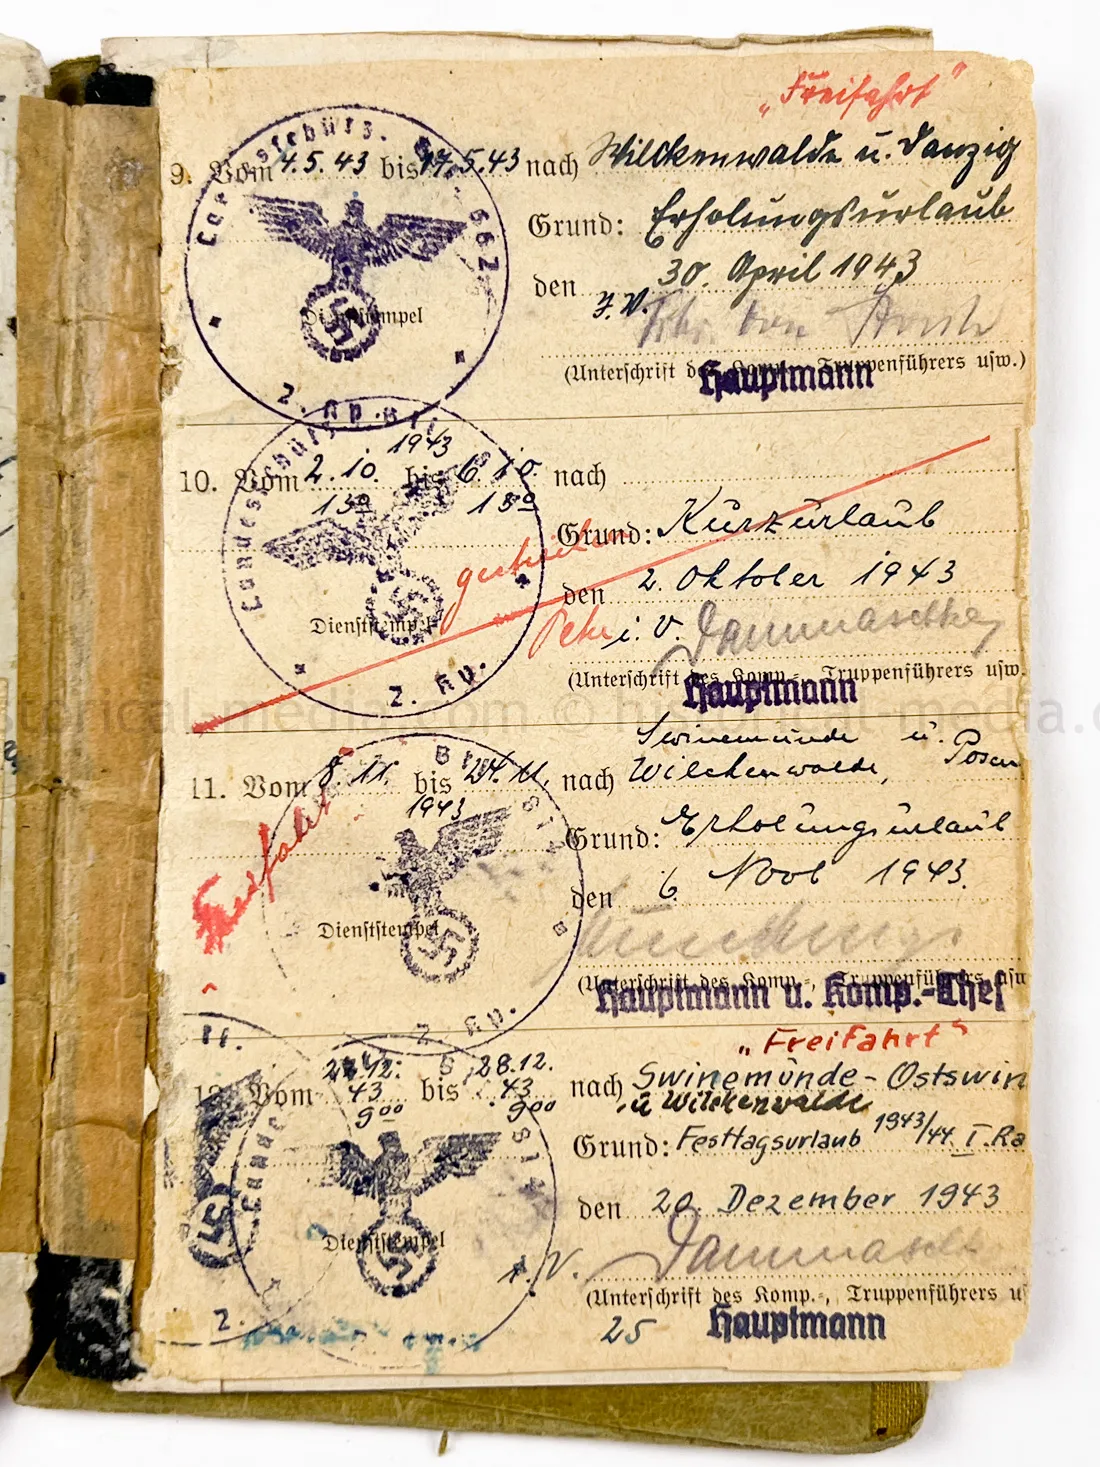 „Freifahrt"
9. Vom 4.5.43 bis 17.5.43 nach Wilckenwalde u. Danzig
Grund: Erholungsurlaub
den 30. April 1943
I.V.
Dienststempel
(Unterschrift des Komp.-, Truppenführers usw.)
Hauptmann
Landesschütz. 662
2. Kp.
1943
10. Vom 2.10. bis 6.10. nach
13⁰⁰ 13⁰⁰
Grund: Kurzurlaub
den 2. Oktober 1943
Dienststempel
i. V. Dammaschke
(Unterschrift des Komp.-, Truppenführers usw.
Hauptmann
2. Kp.
Swinemünde u. Posen
11. Vom 8.11. bis 24.11. nach Wilckenwalde,
1943
Freifahrt
Grund: Erholungsurlaub
den 6. Novb 1943.
Dienststempel
(Unterschrift des Komp.-, Truppenführers usw
Hauptmann u. Komp.-Chef
2. Kp.
„Freifahrt"
12. Vom 22.12. 43 bis 28.12. 43 nach Swinemünde - Ostswin
9⁰⁰ 9⁰⁰ u Wilckenwalde
Grund: Festtagsurlaub 1943/44 I. Ra
den 20. Dezember 1943
Dienststempel
i. V. Dammaschk
(Unterschrift des Komp.-, Truppenführers us
25 Hauptmann
2.
historical-media.com © historical-media.c